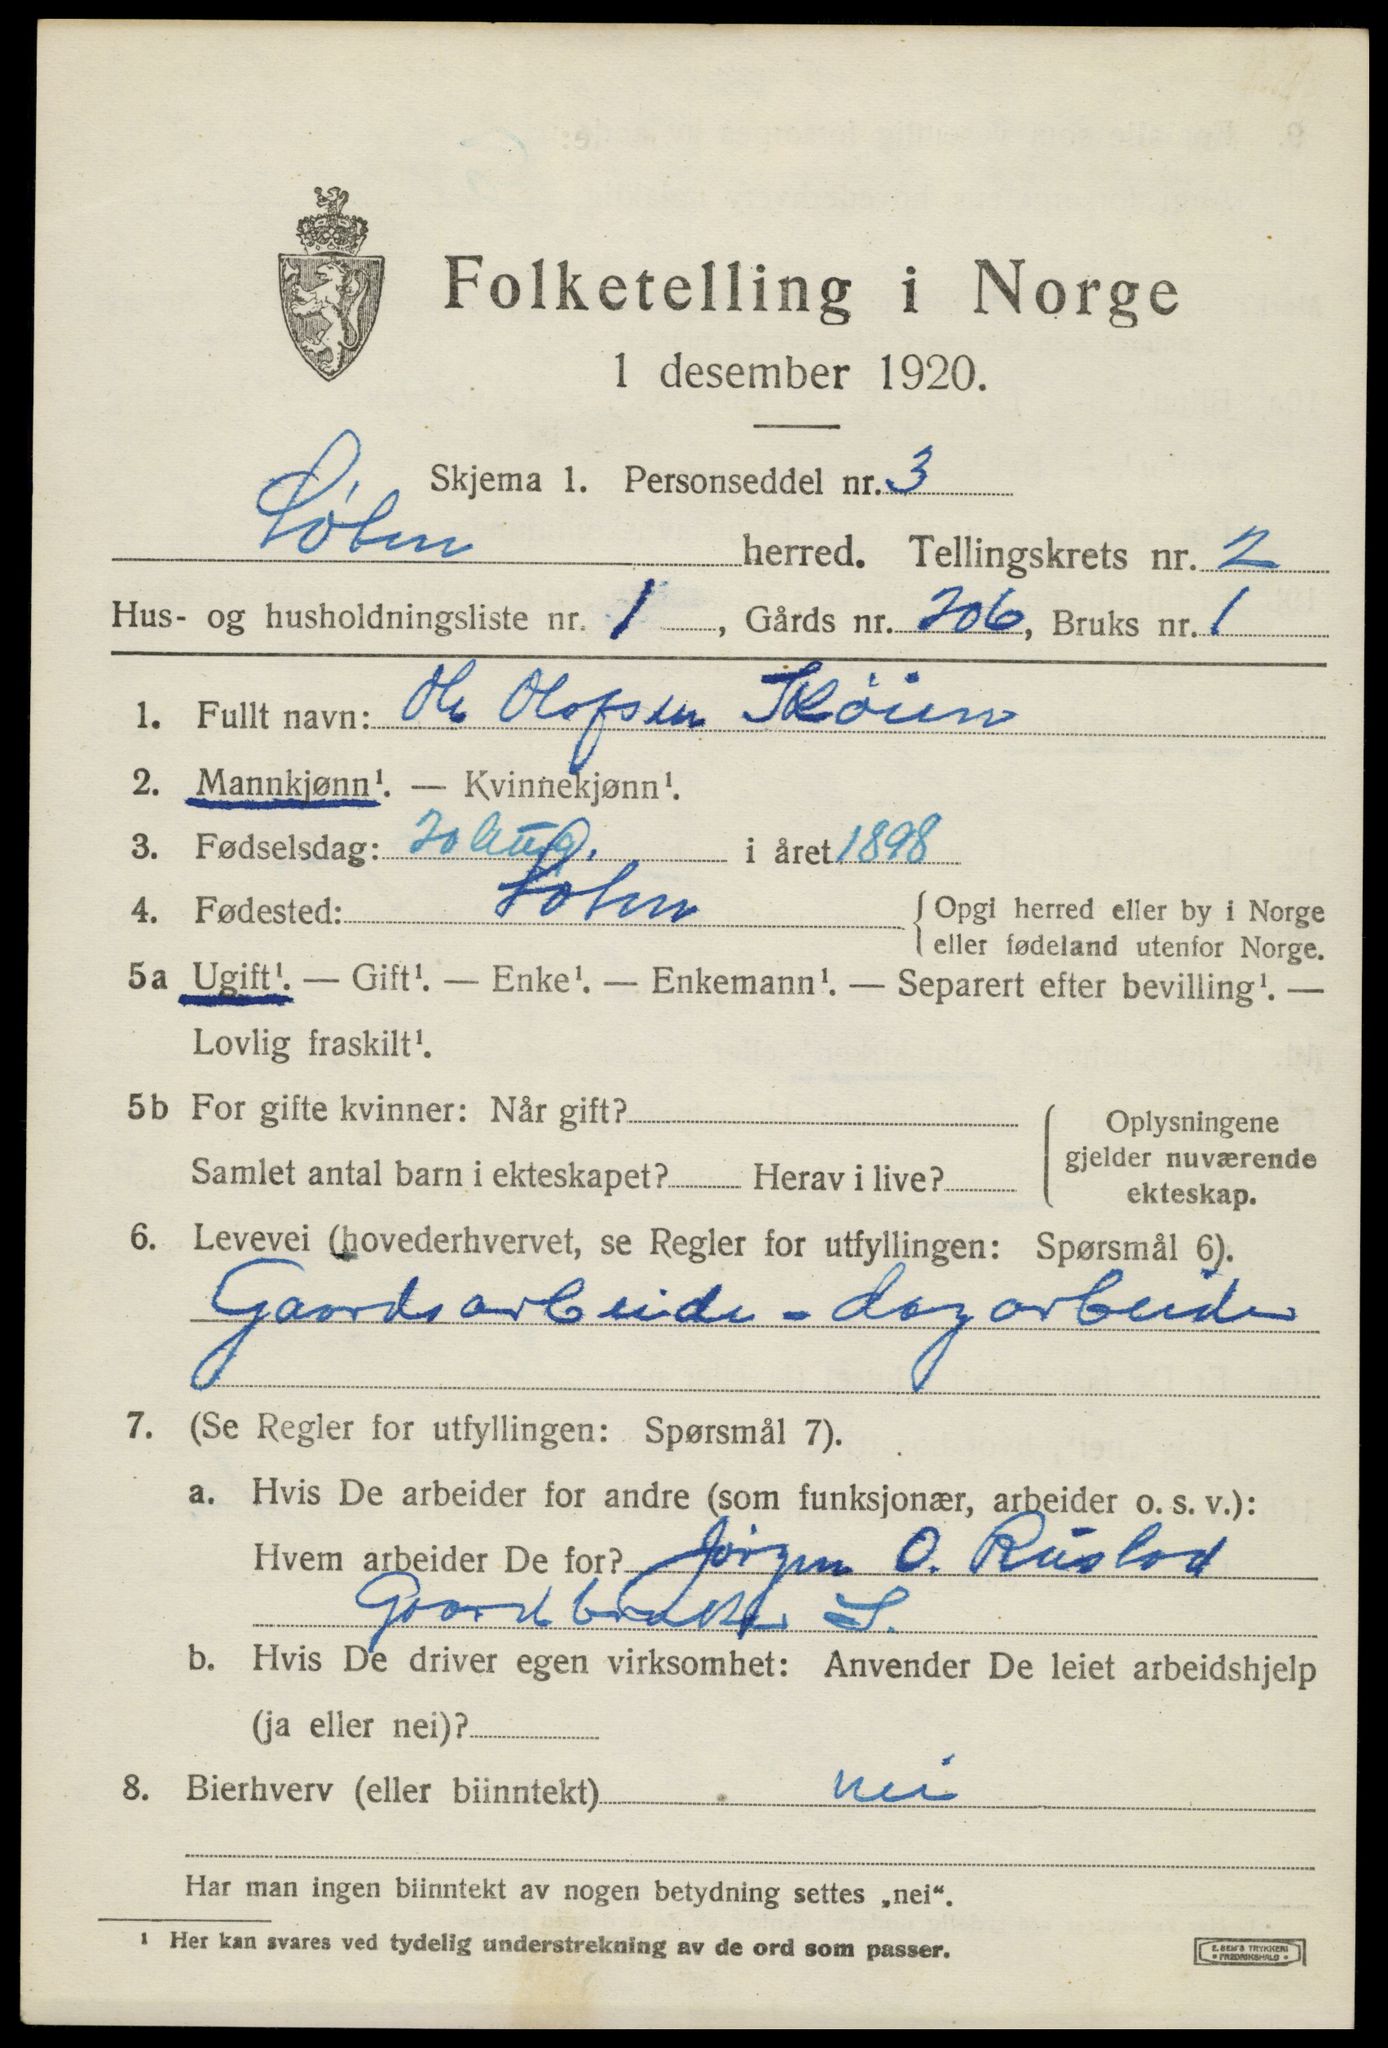 Folketelling i Norge
1 desember 1920.
Skjema 1. Personseddel nr. 3
Løten herred. Tellingskrets nr. 2
Hus- og husholdningsliste nr. 1, Gårds nr. 206, Bruks nr. 1
1. Fullt navn: Ole Olofsen Skøien
2. Mannkjønn¹. — Kvinnekjønn¹.
3. Fødselsdag: 20 Aug. i året 1898
4. Fødested: Løten { Opgi herred eller by i Norge
eller fødeland utenfor Norge.
5a Ugift¹. — Gift¹. — Enke¹. — Enkemann¹. — Separert efter bevilling¹. —
Lovlig fraskilt¹.
5b For gifte kvinner: Når gift?
Samlet antal barn i ekteskapet? Herav i live?
Oplysningene
gjelder nuværende
ekteskap.
6. Levevei (hovederhvervet, se Regler for utfyllingen: Spørsmål 6).
Gaardsarbeider - dagarbeider
7. (Se Regler for utfyllingen: Spørsmål 7).
a. Hvis De arbeider for andre (som funksjonær, arbeider o. s. v.):
Hvem arbeider De for? Jørgen O. Rustad
Gaardbruker S.
b. Hvis De driver egen virksomhet: Anvender De leiet arbeidshjelp
(ja eller nei)?
8. Bierhverv (eller biinntekt) nei
Har man ingen biinntekt av nogen betydning settes „nei“.
¹ Her kan svares ved tydelig understrekning av de ord som passer.
E. SEM'S TRYKKERI
FREDRIKSHALD